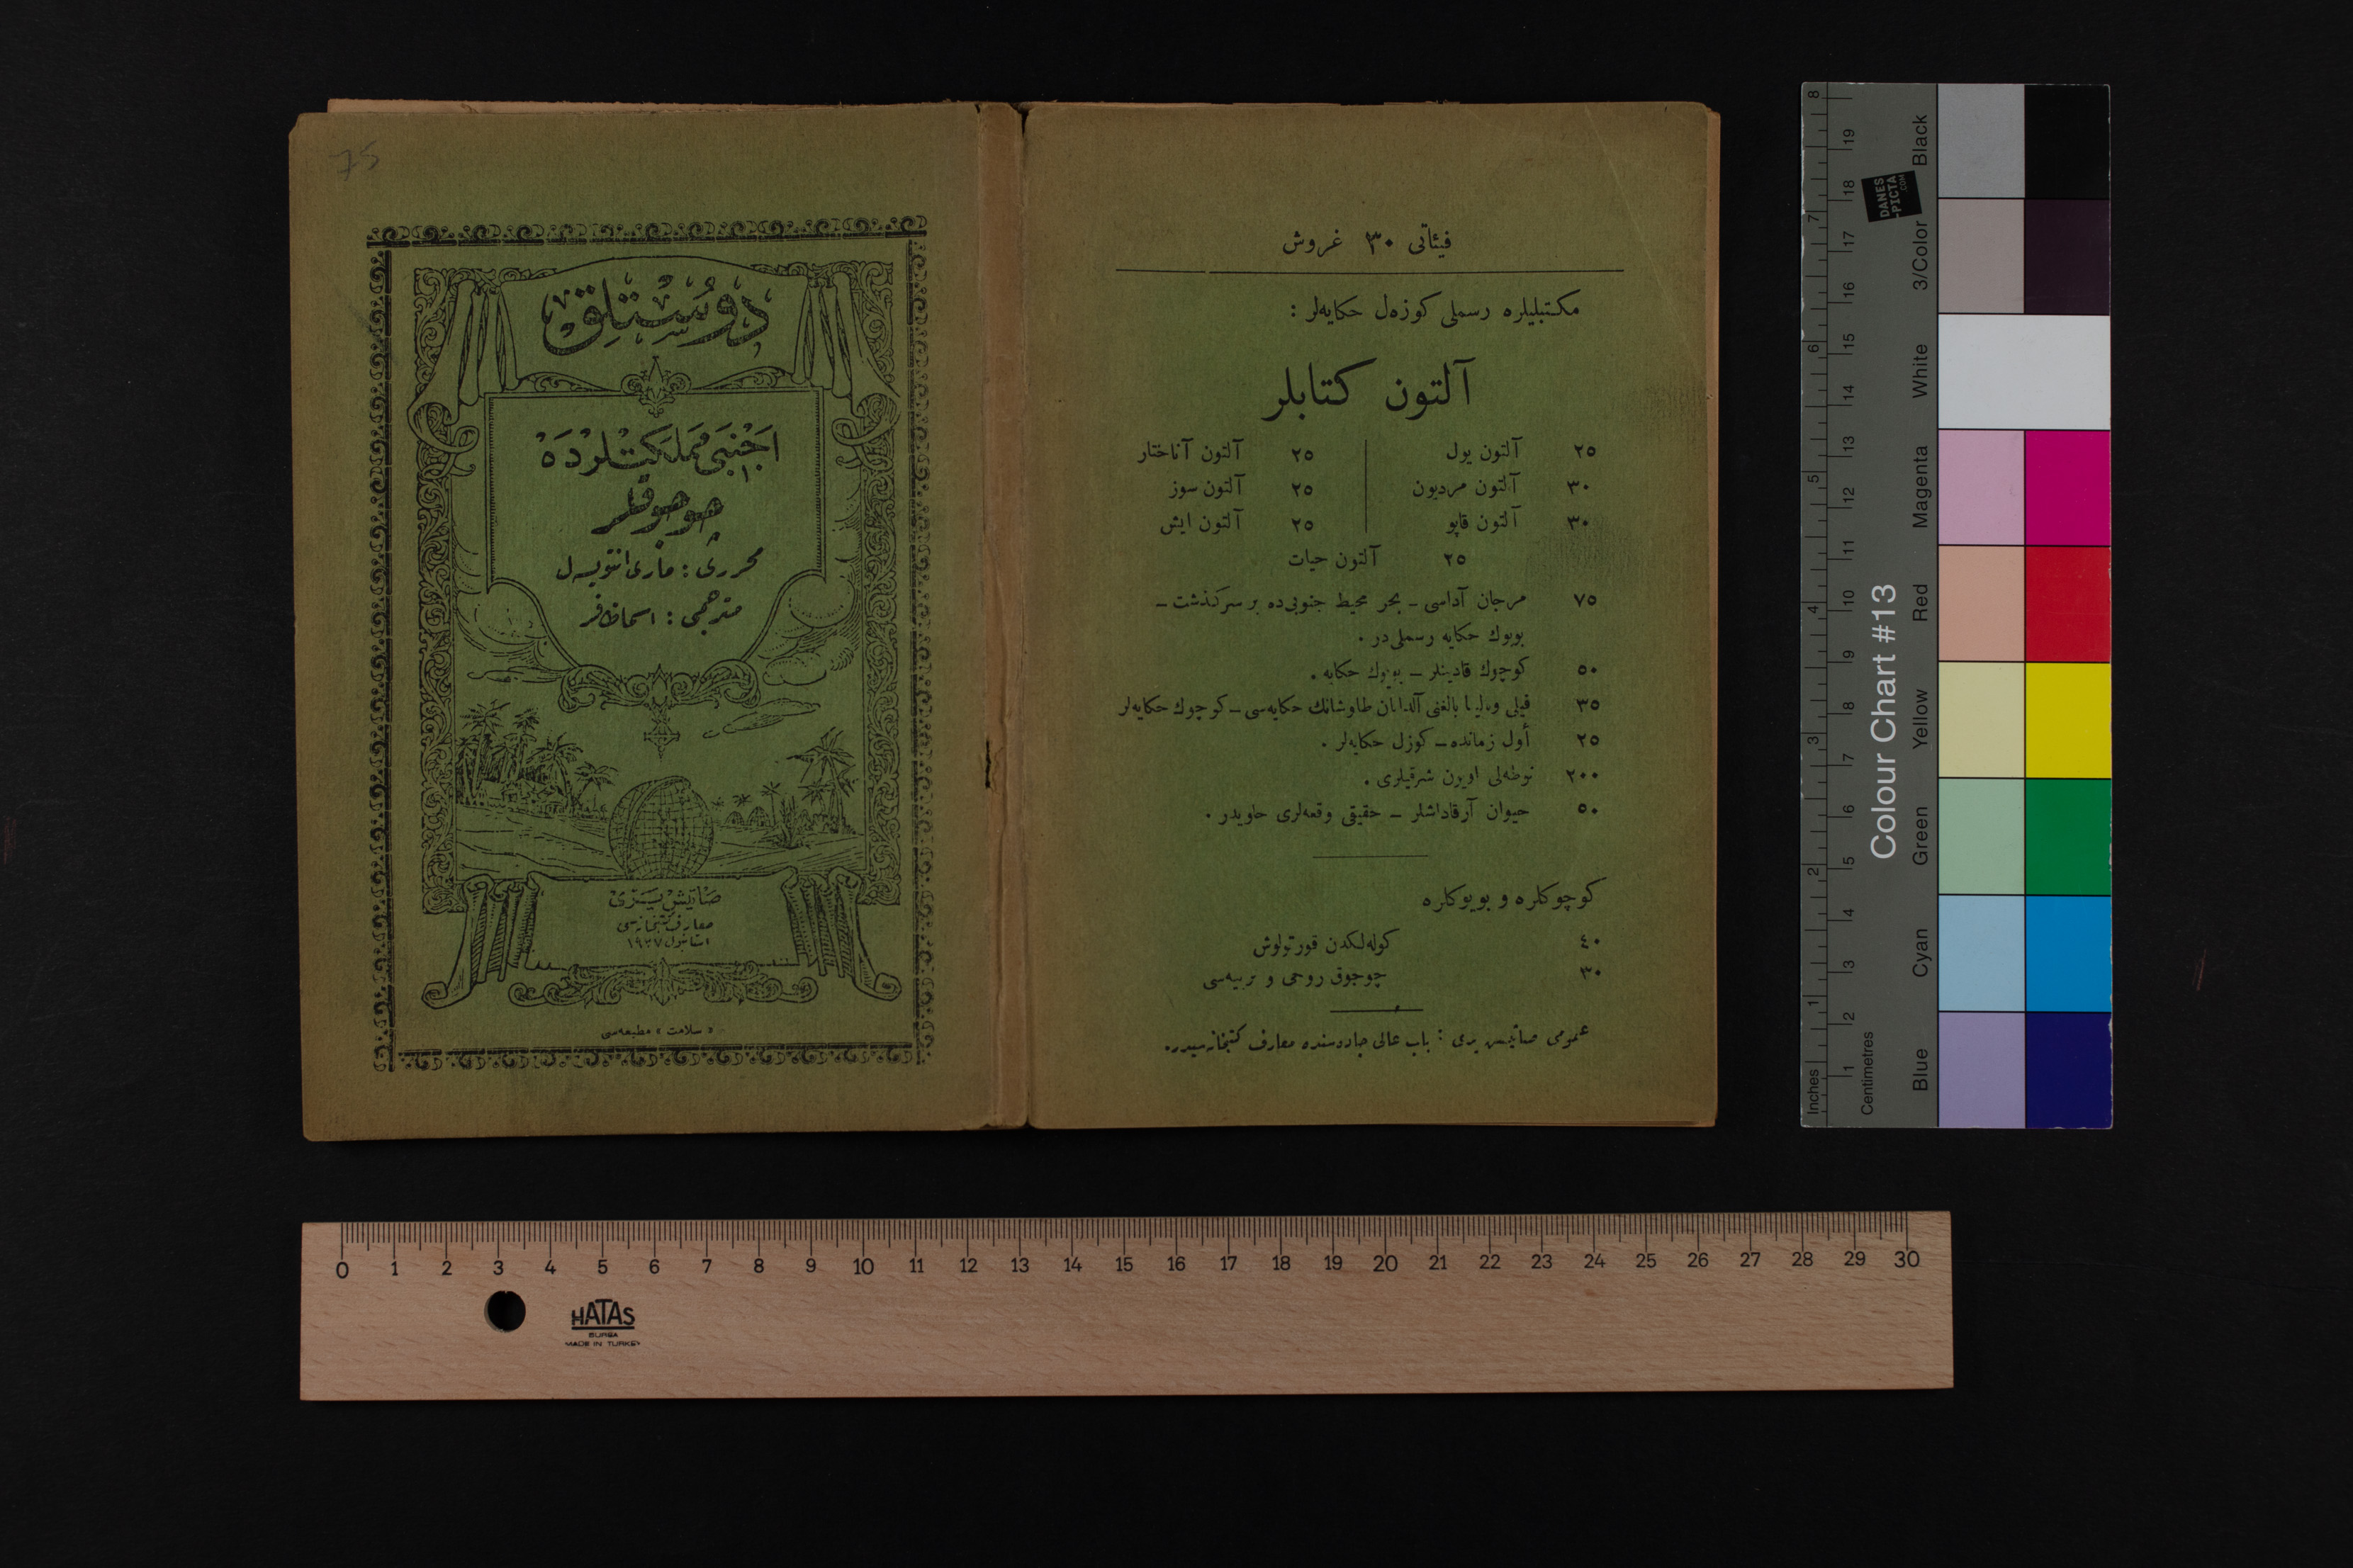 75
دوستلق
اجنبی مملكتلرده
چوجوقلر
محرری : ماری انتوبیه‌ل
مترجمی : اسماء ظفر
صاتیش یری
معارف كتبخانه‌سی
استانبول ١٩٢٧
« سلامت » مطبعه‌سی
فیئاتی ٣٠ غروش
مكتبلیلره رسملی كوزه‌ل حكایه‌لر :
آلتون كتابلر
٢٥ آلتون یول ٢٥ آلتون آناختار
٣٠ آلتون مردیون ٢٥ آلتون سوز
٣٠ آلتون قاپو ٢٥ آلتون ایش
٢٥ آلتون حیات
٧٥ مرجان آداسی ـ بحر محیط جنوبی‌ده بر سركذشت ـ
بویوك حكایه رسملی‌در .
٥٠ كوچوك قادینلر ـ بویوك حكایه .
٣٥ فیلی و بالینا بالغنی آلدابان طاوشانك حكایه‌سی ـ كوچوك حكایه‌لر
٢٥ أول زمانده ـ كوزل حكایه‌لر .
٢٠٠ نوطه‌لی اویون شرقیلری .
٥٠ حیوان آرقاداشلر ـ حقیقی وقعه‌لری حاویدر .
كوچوكلره و بویوكلره
٤٠ كوله‌لكدن قورتولوش
٣٠ چوجوق روحی و تربیه‌سی
عمومی صاتیش یری : باب عالی جاده‌سنده معارف كتبخانه‌سیدر.
Inches
Centimetres
Colour Chart #13
Blue
Cyan
Green
Yellow
Red
Magenta
White
3/Color
Black
DANES
-PICTA
.COM
1 2 3 4 5 6 7 8
1 2 3 4 5 6 7 8 9 10 11 12 13 14 15 16 17 18 19
0 1 2 3 4 5 6 7 8 9 10 11 12 13 14 15 16 17 18 19 20 21 22 23 24 25 26 27 28 29 30
HATAS
BURSA
MADE IN TURKEY